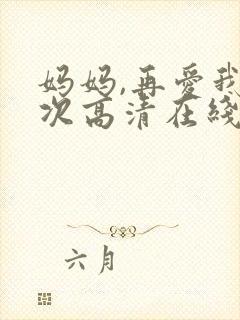 妈妈,再爱我
次高清在线
六月